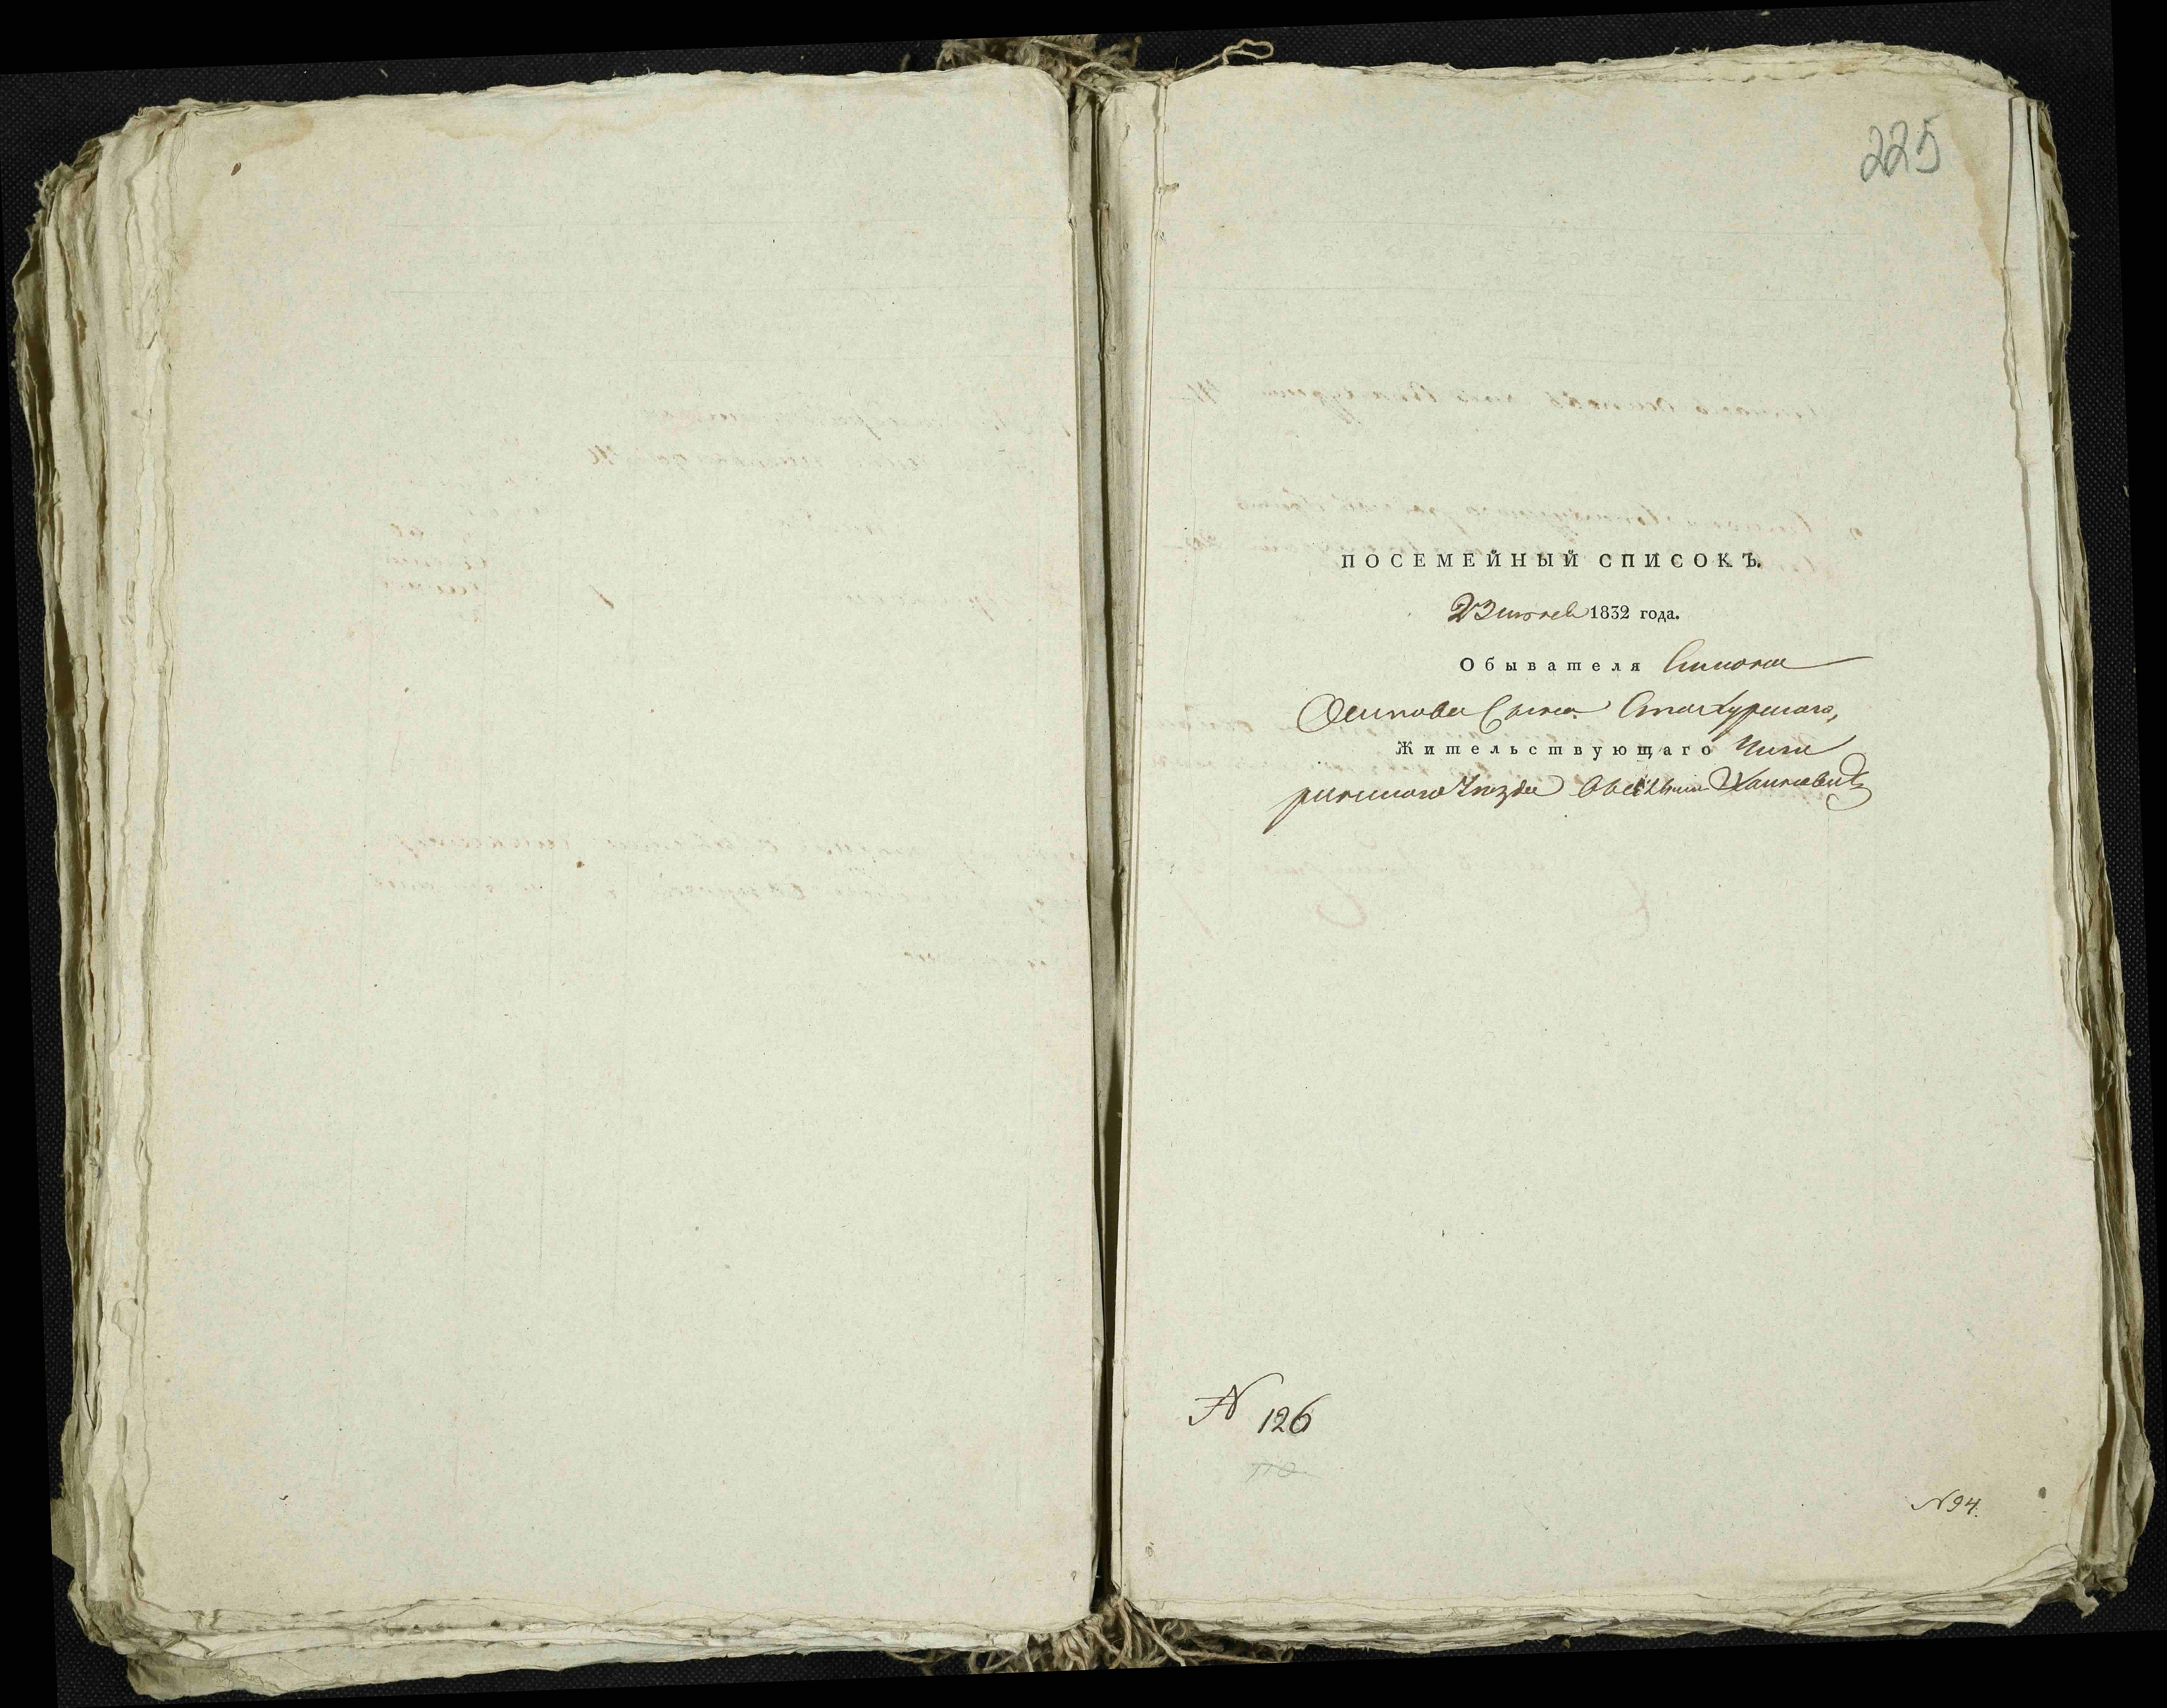 225
ПОСЕМЕЙНЫЙ СПИСОКЪ.
23 июня 1832 года.
Обывателя Симона
Осипова Сына Стахурскаго,
Жительствующаго Чиги
ринскаго Уезда
N 126
N 94.